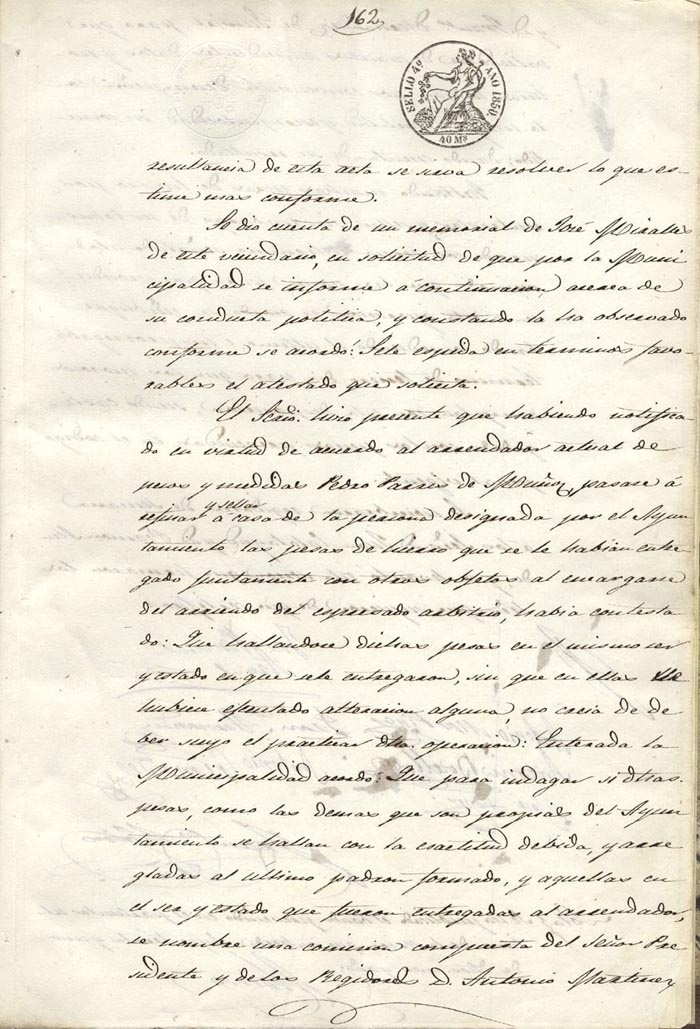 162
SELLO 4º AÑO 1850.
40 Ms
resultancia de esta acta se sirva resolver lo que es-
time mas conforme.
Se dio cuenta de un memorial de José Miralles
de este vecindario, en solicitud de que por la Muni
cipalidad se informe á continuacion acerca de
su conducta politica, y constando la ha observado
conforme se acordó: Sele espida en terminos favo-
rables el atestado que solicita.
El Srio. hizo presente que habiendo notifica-
do en virtud de acuerdo al arrendador actual de
pesos y medidas Pedro de Muñoz, pasase á
y sellar
refinar á casa de la persona designada por el Ayun
tamiento las pesas de hierro que se le habian entre
gado juntamente con otros objetos al encargarse
del arriendo del espresado arbitrio, habia contesta
do: Que hallandose dichas pesas en el mismo ser
y estado en que sele entregaron, sin que en ellas se
hubiese efectuado alteracion alguna, no creia de de
ber suyo el practicar dha. operacion: Enterada la
Municipalidad acordó: Que para indagar si dhas.
pesas, como las demas que son propias del Ayun
tamiento se hallan con la esactitud debida, y arre
gladas al ultimo padron formado, y aquellas en
el ser y estado que fueron entregadas al arrendador,
se nombre una comision compuesta del Señor Pre
sidente y delos Regidores D. Antonio Martinez